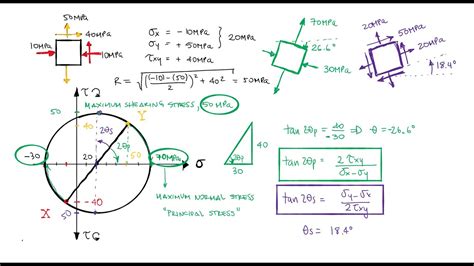 50MPa
40MPa
10MPa
10MPa
σx = -10MPa
σy = +50MPa
τxy = +40MPa
20MPa
R = √(((-10) - (50))/2)² + 40² = 50MPa
70MPa
26.6°
30MPa
20MPa
50MPa
18.4°
MAXIMUM SHEARING STRESS, 50MPa
50
40
Y
2θs
2θp
-30
20
70MPa
σ
X
-40
50
MAXIMUM NORMAL STRESS
"PRINCIPAL STRESS"
40
2θp
30
tan 2θp = 40/-30 => θ = -26.6°
tan 2θp = 2τxy/(σx-σy)
tan 2θs = (σy-σx)/2τxy
θs = 18.4°